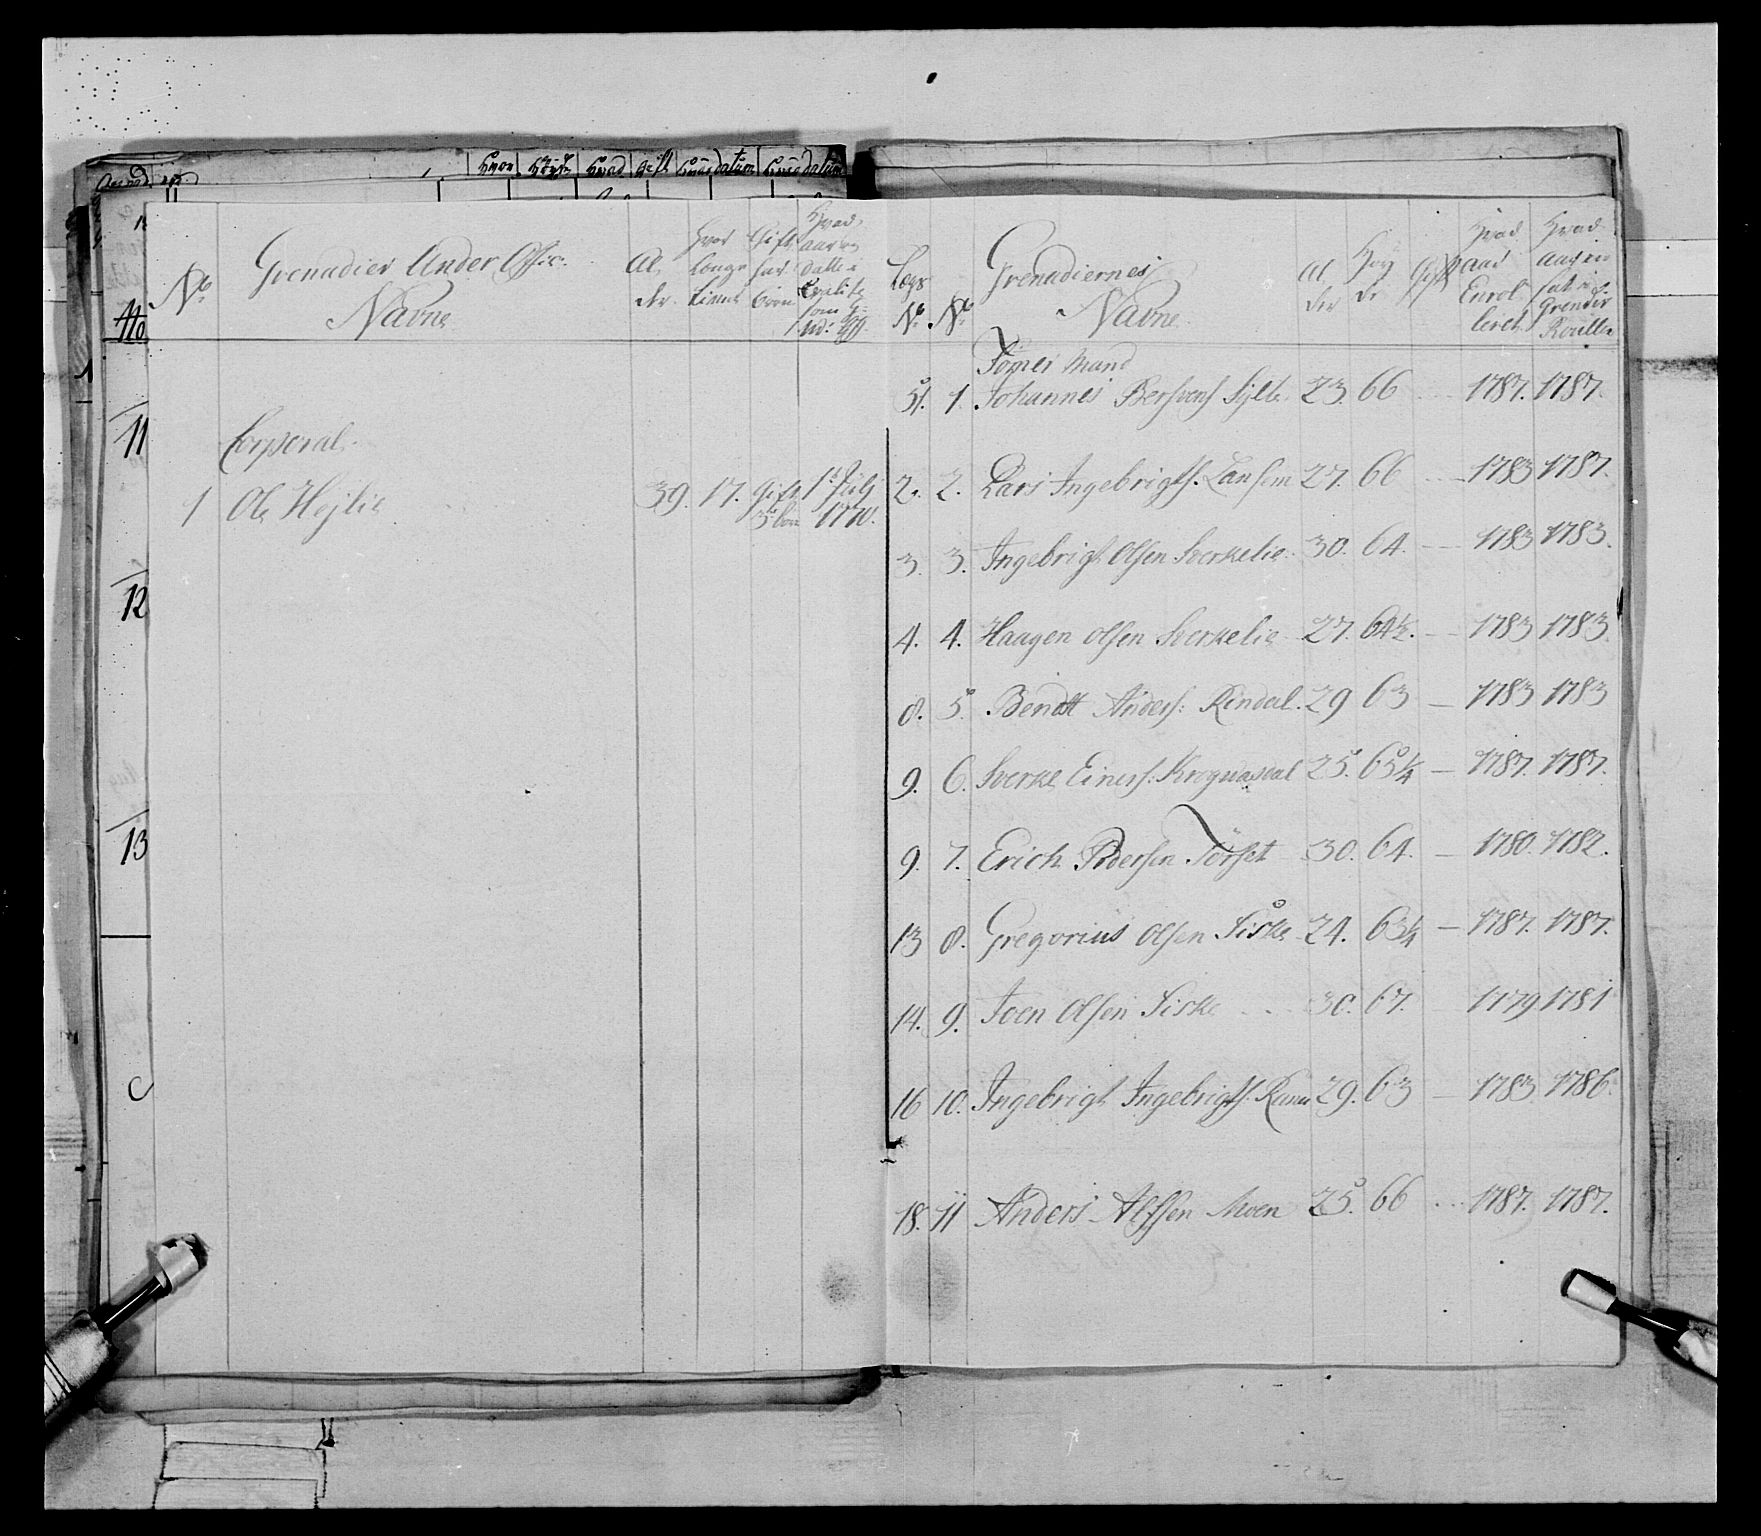 Hvor Høyde Hvad Gift datum datum
No
11
12
13
No Grenadier Under Offic: Navne
Al der. Hvor Længe tient Gift har Børn Hvad aar og datte i qvalitet som G: Und: Off.
Corporal.
1 Ole Hejlie 39. 17. Gift 3 børn 1te Julj 1770.
Lægs No No Grenadiernes Navne Al der Høy de Gift Hvad aar Enrol leret Hvad aar in sat i Grenadr Roullen
Tømer Mand
51. 1. Johannes Bersvens Sylte 23. 66 1787. 1787.
2. 2. Lars Ingebrigts. Lansem 27. 66 1783 1787.
3. 3. Ingebrigt Olsen Sverkelie 30. 64. 1783 1783.
4. 4. Haagen Olsen Sverkelie 27. 64½. 1783 1783
8. 5. Bendt Anders: Rindal. 29 63 1783 1783
9. 6. Sverke Einers: 25. 65¼ 1787. 1787.
9. 7. Erich Pedersen Tørset 30. 64. 1780. 1782.
13 8. Gregorius Olsen Siske 24. 63¼ 1787. 1787.
14. 9. Joen Olsen Siske 30. 67. 1779 1781
16 10. Ingebrigt Ingebrigts. 29. 63 1783 1786.
18. 11 Anders Alfsen Moen 25. 66 1787. 1787.